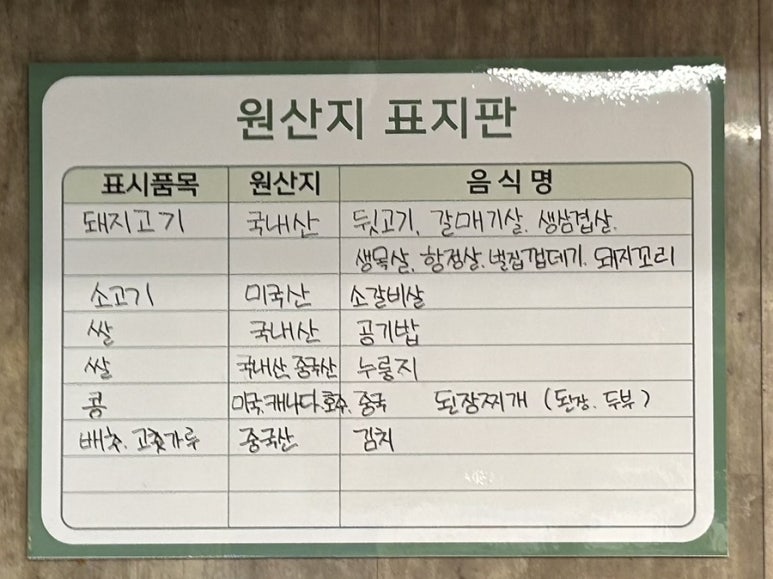 원산지 표지판
표시품목 원산지 음식명
돼지고기 국내산 뒷고기, 갈매기살, 생삼겹살,
생목살, 항정살, 벌집껍데기, 돼지꼬리
소고기 미국산 소갈비살
쌀 국내산 공기밥
쌀 국내산, 중국산 누룽지
콩 미국, 캐나다, 호주, 중국 된장찌개 (된장, 두부)
배추, 고춧가루 중국산 김치